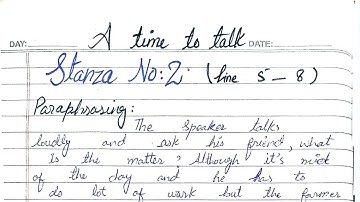 A time to talk
DAY: DATE:
Stanza No:2. (line 5-8)
Paraphrasing:
The Speaker talks
loudly and ask his friend, what
is the matter? Although it's mid
of the day and he has to
do lot of work but the farmer